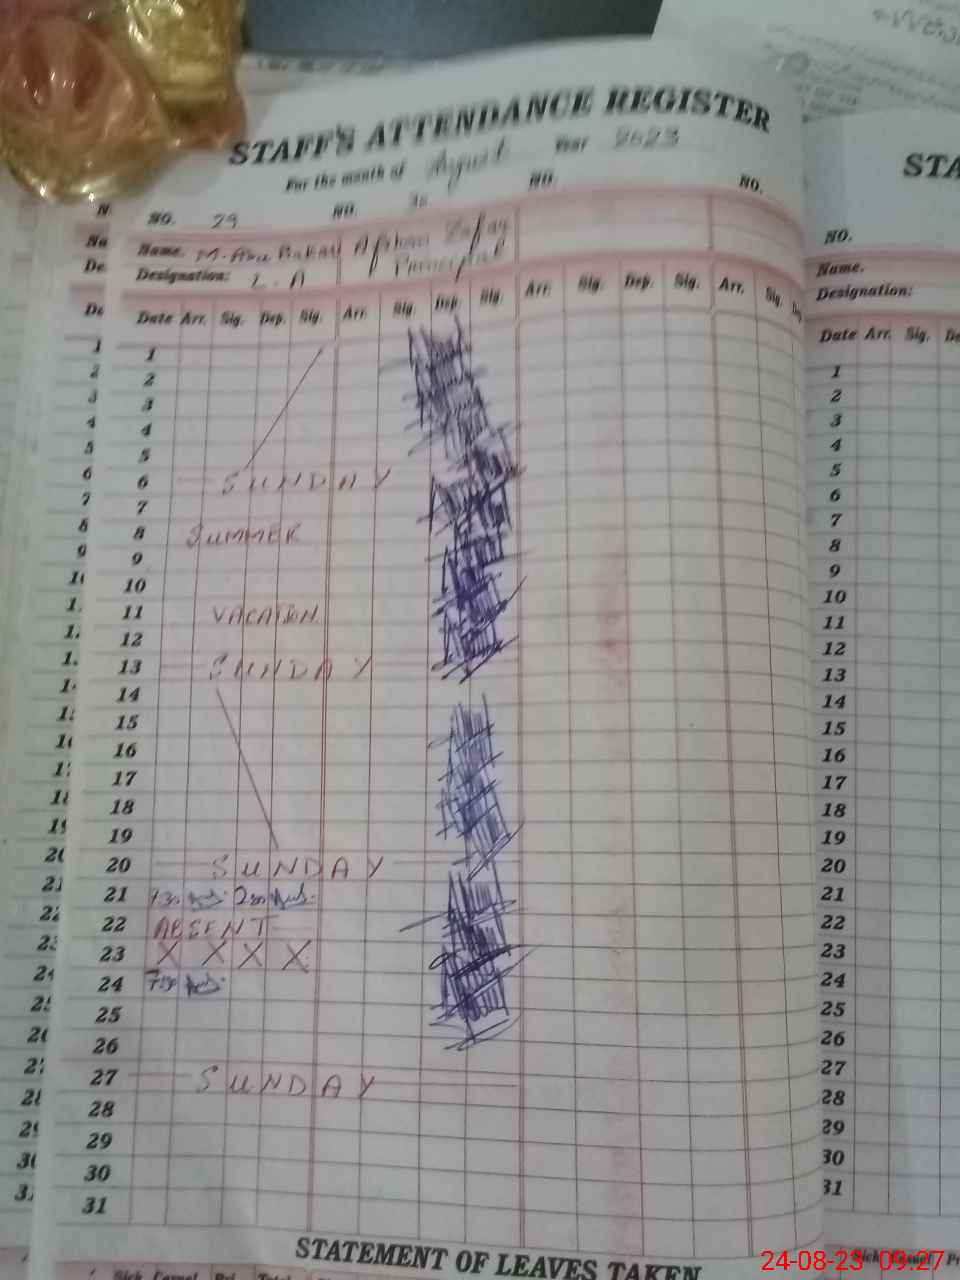 STAFF'S ATTENDANCE REGISTER
For the month of August Year 2023
NO. 29 NO. 30 NO. NO.
Name. M. Abu Bakar Afshan Zafar
Designation: L.A Principal
Date Arr. Sig. Dep. Sig. Arr. Sig. Dep. Sig. Arr. Sig. Dep. Sig. Arr. Sig.
1
2
3
4
5
6 SUNDAY
7
8 SUMMER
9
10
11 VACATION
12
13 SUNDAY
14
15
16
17
18
19
20 SUNDAY
21 730 200
22 ABSENT
23 X X X X
24 730
25
26
27 SUNDAY
28
29
30
31
STATEMENT OF LEAVES TAKEN
Sick Casual Pri. Total
STA
NO.
Name.
Designation:
Date Arr. Sig. De
1
2
3
4
5
6
7
8
9
10
11
12
13
14
15
16
17
18
19
20
21
22
23
24
25
26
27
28
29
30
31
Sick Casual Pr
24-08-23 09:27